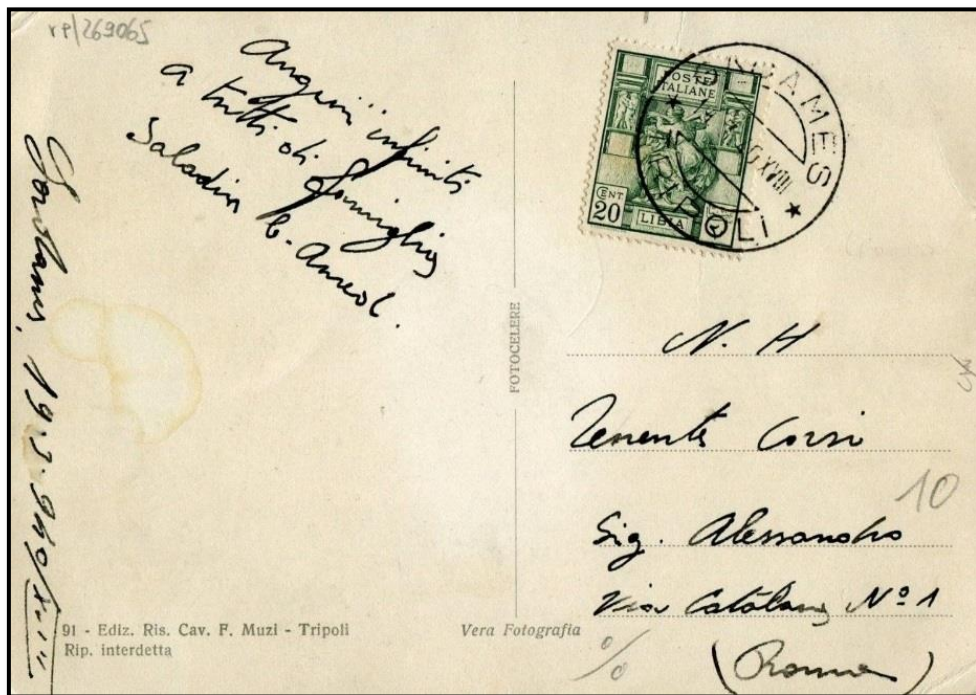 rp/269065
Auguri infiniti
a tutti di famiglia
Saladin
POSTE
ITALIANE
CENT
20
LIBIA
GADAMES
XVIII
TRIPOLI
FOTOCELERE
N. H
Tenente Corsi
10
Sig. Alessandro
Via Catalana Nº 1
(Roma)
%
91 - Ediz. Ris. Cav. F. Muzi - Tripoli
Rip. interdetta
Vera Fotografia